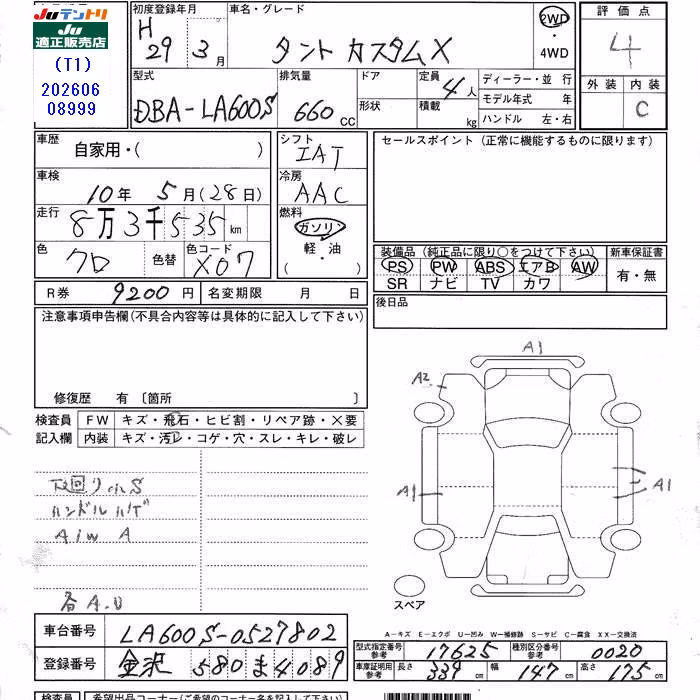 Juテントリ
Ju
適正販売店
(T1)
202606
08999
初度登録年月
H
29 3月
車名・グレード
タント カスタムX
2WD
・
4WD
評価点
4
外装 内装
C
型式
DBA-LA600S
排気量
660 cc
ドア
形状
定員
4人
積載
kg
ディーラー・並行
モデル年式 年
ハンドル 左・右
車歴
自家用・( )
車検
10年 5月(28日)
走行
8万3千535km
色
クロ
色替
色コード
X07
シフト
IAT
冷房
AAC
燃料
ガソリン
軽・油
( )
セールスポイント(正常に機能するものに限ります)
装備品(純正品に限り○をつけて下さい)
PS PW ABS エアB AW
SR ナビ TV カワ
新車保証書
有・無
後日品
R券 9200円
名変期限 月 日
注意事項申告欄(不具合内容等は具体的に記入して下さい)
修復歴 有〔箇所 〕
検査員
記入欄
FW キズ・飛石・ヒビ割・リペア跡・X要
内装 キズ・汚レ・コゲ・穴・スレ・キレ・破レ
下回り小S
ハンドルハゲ
A/W A
各A.U
A1
A2
A1
A1
スペア
A-キズ E-エクボ U-凹み W-補修跡 S-サビ C-腐食 XX-交換済
車台番号 LA600S-0527802
登録番号 金沢 580 ま 4089
型式指定番号
参考
17625
種別区分番号
参考
0020
車庫証明用
参考
長さ 339 幅 147 高さ 175
cm
検査員
希望出品コーナー(ご希望のコーナー名を記入して下さい)